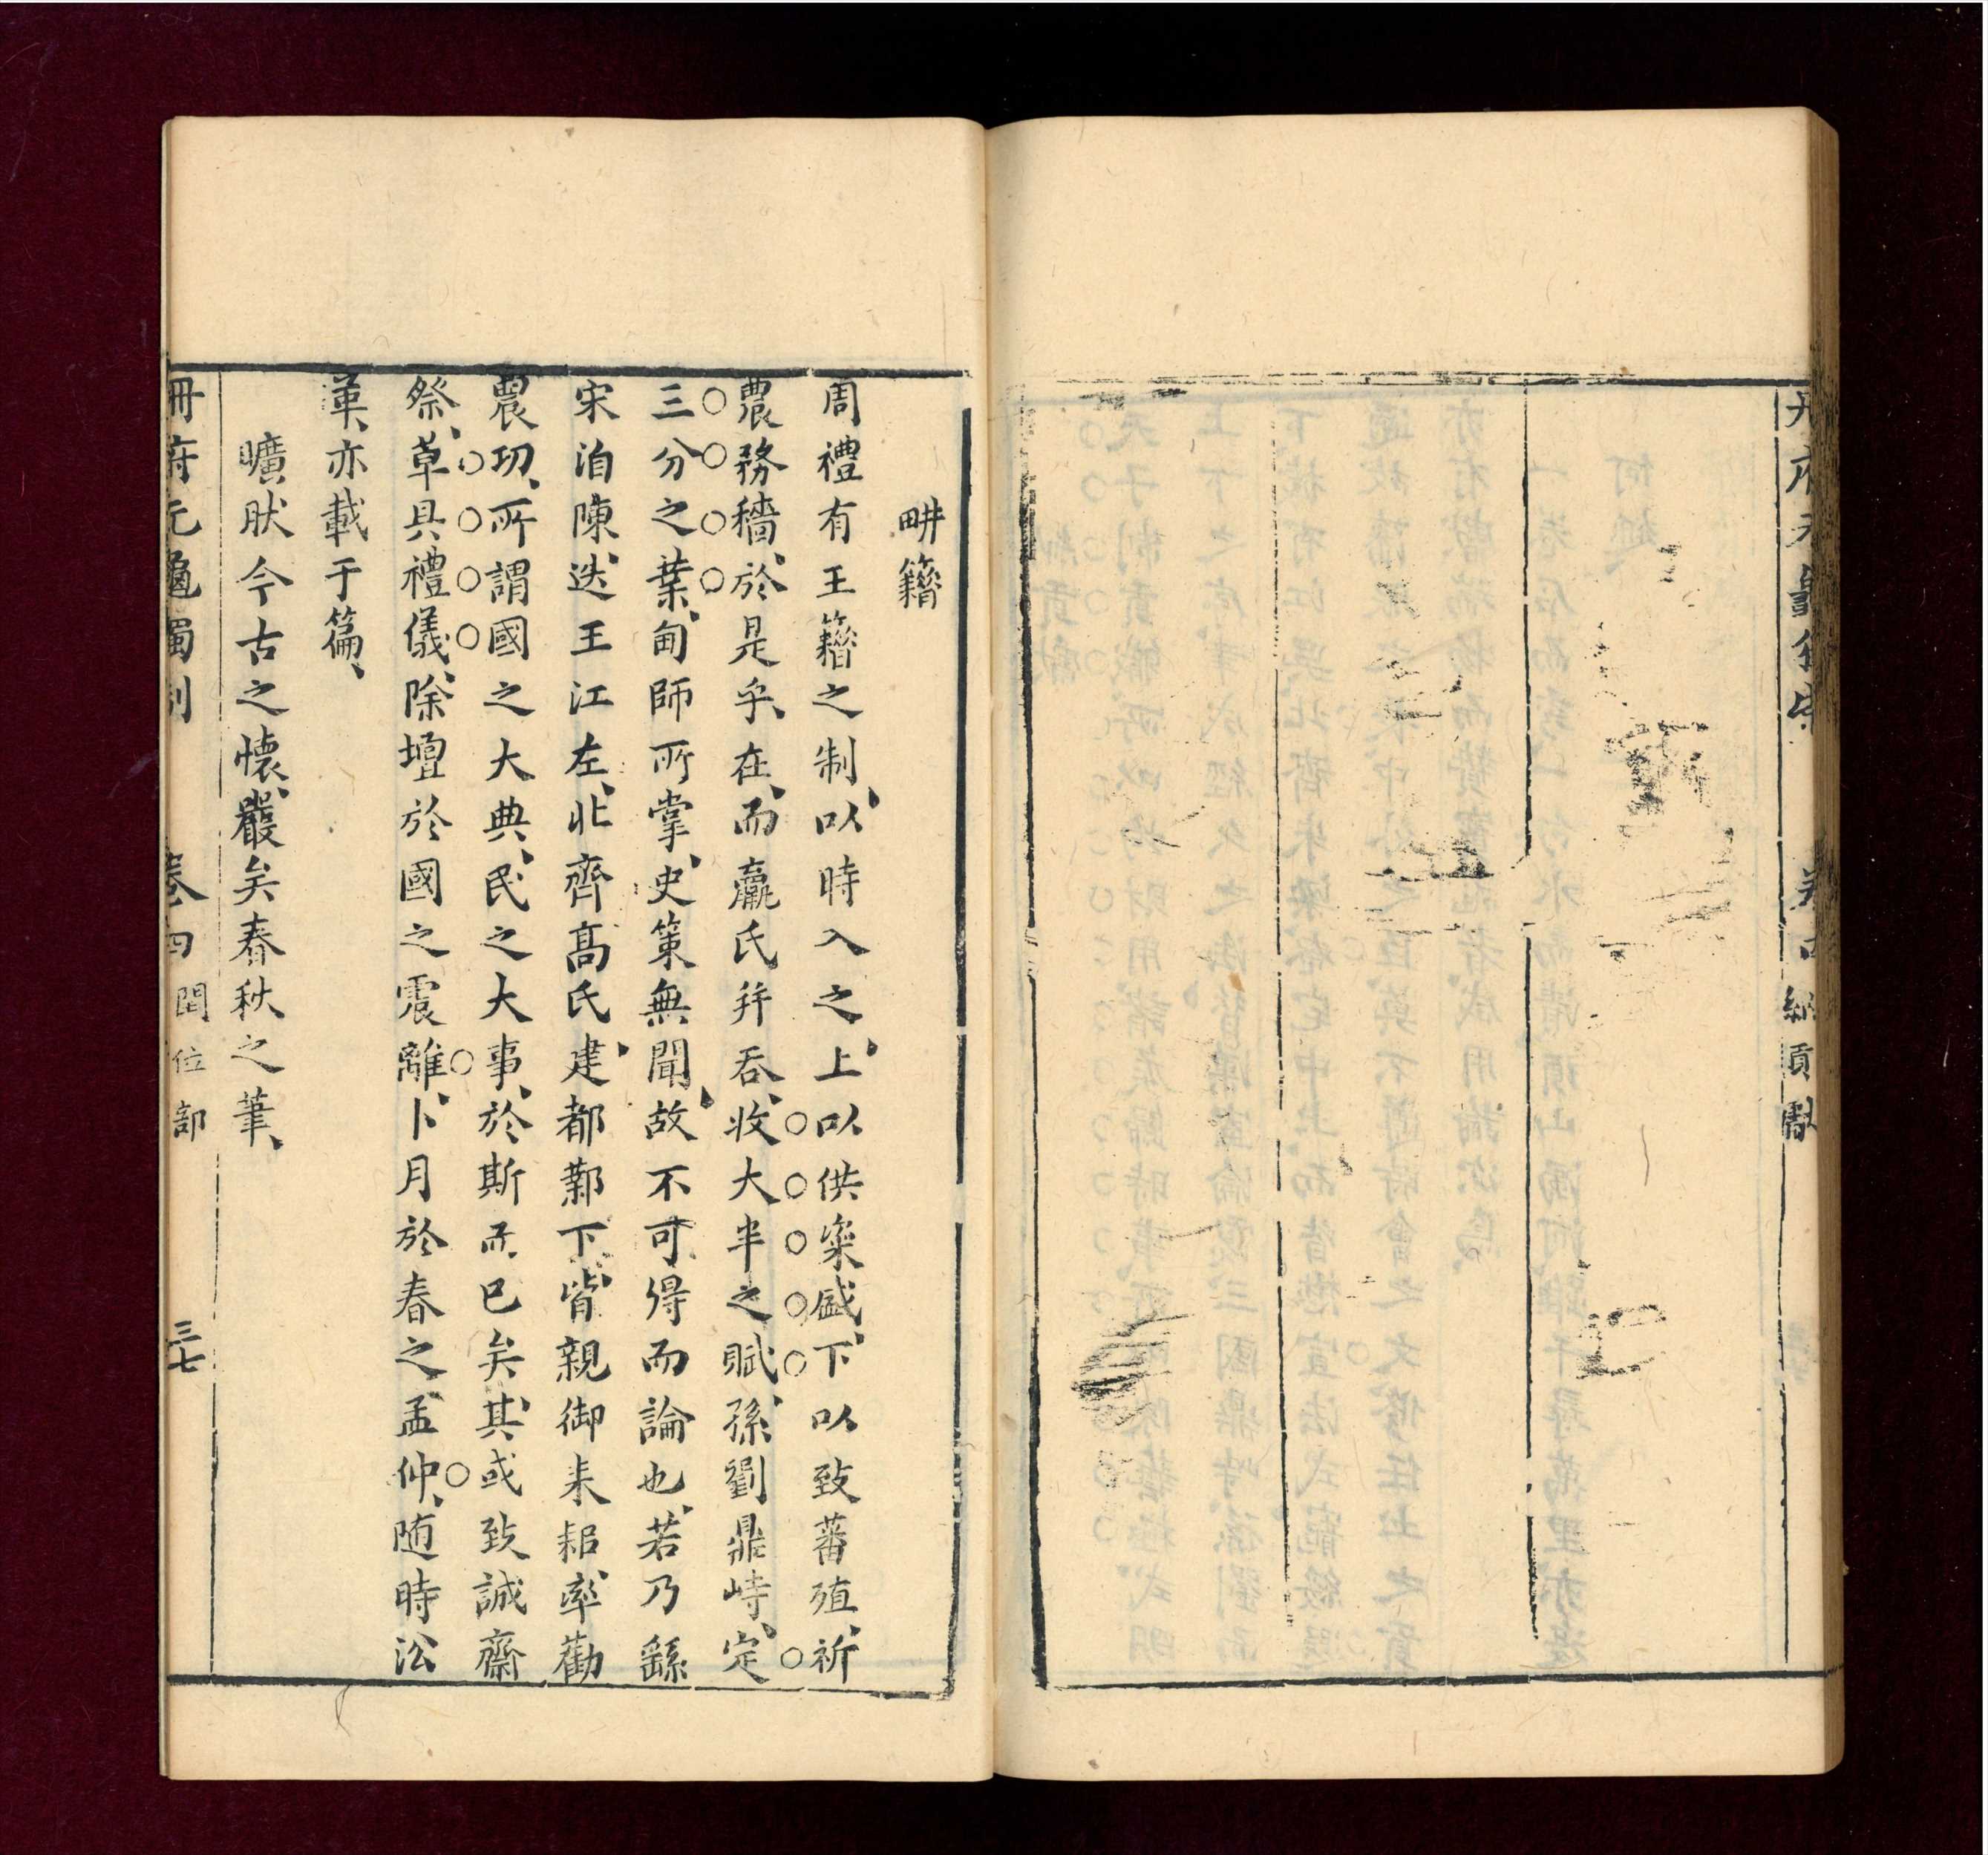 納貢獻
畊籍
周禮有王籍之制以時入之上以供粢盛下以致蕃殖祈
農務穡於是乎在而嬴氏并吞收大半之賦孫劉鼎峙定
三分之業甸師所掌史策無聞故不可得而論也若乃繇
宋洎陳迭王江左北齊高氏建都鄴下皆親御耒耜率勸
農功所謂國之大典民之大事於斯而已矣其或致誠齋
祭草具禮儀除壇於國之震離卜月於春之孟仲随時沿
革亦載于篇
曠肰今古之懷嚴矣春秋之筆
冊府元龜獨制 卷四 閏位部 三七